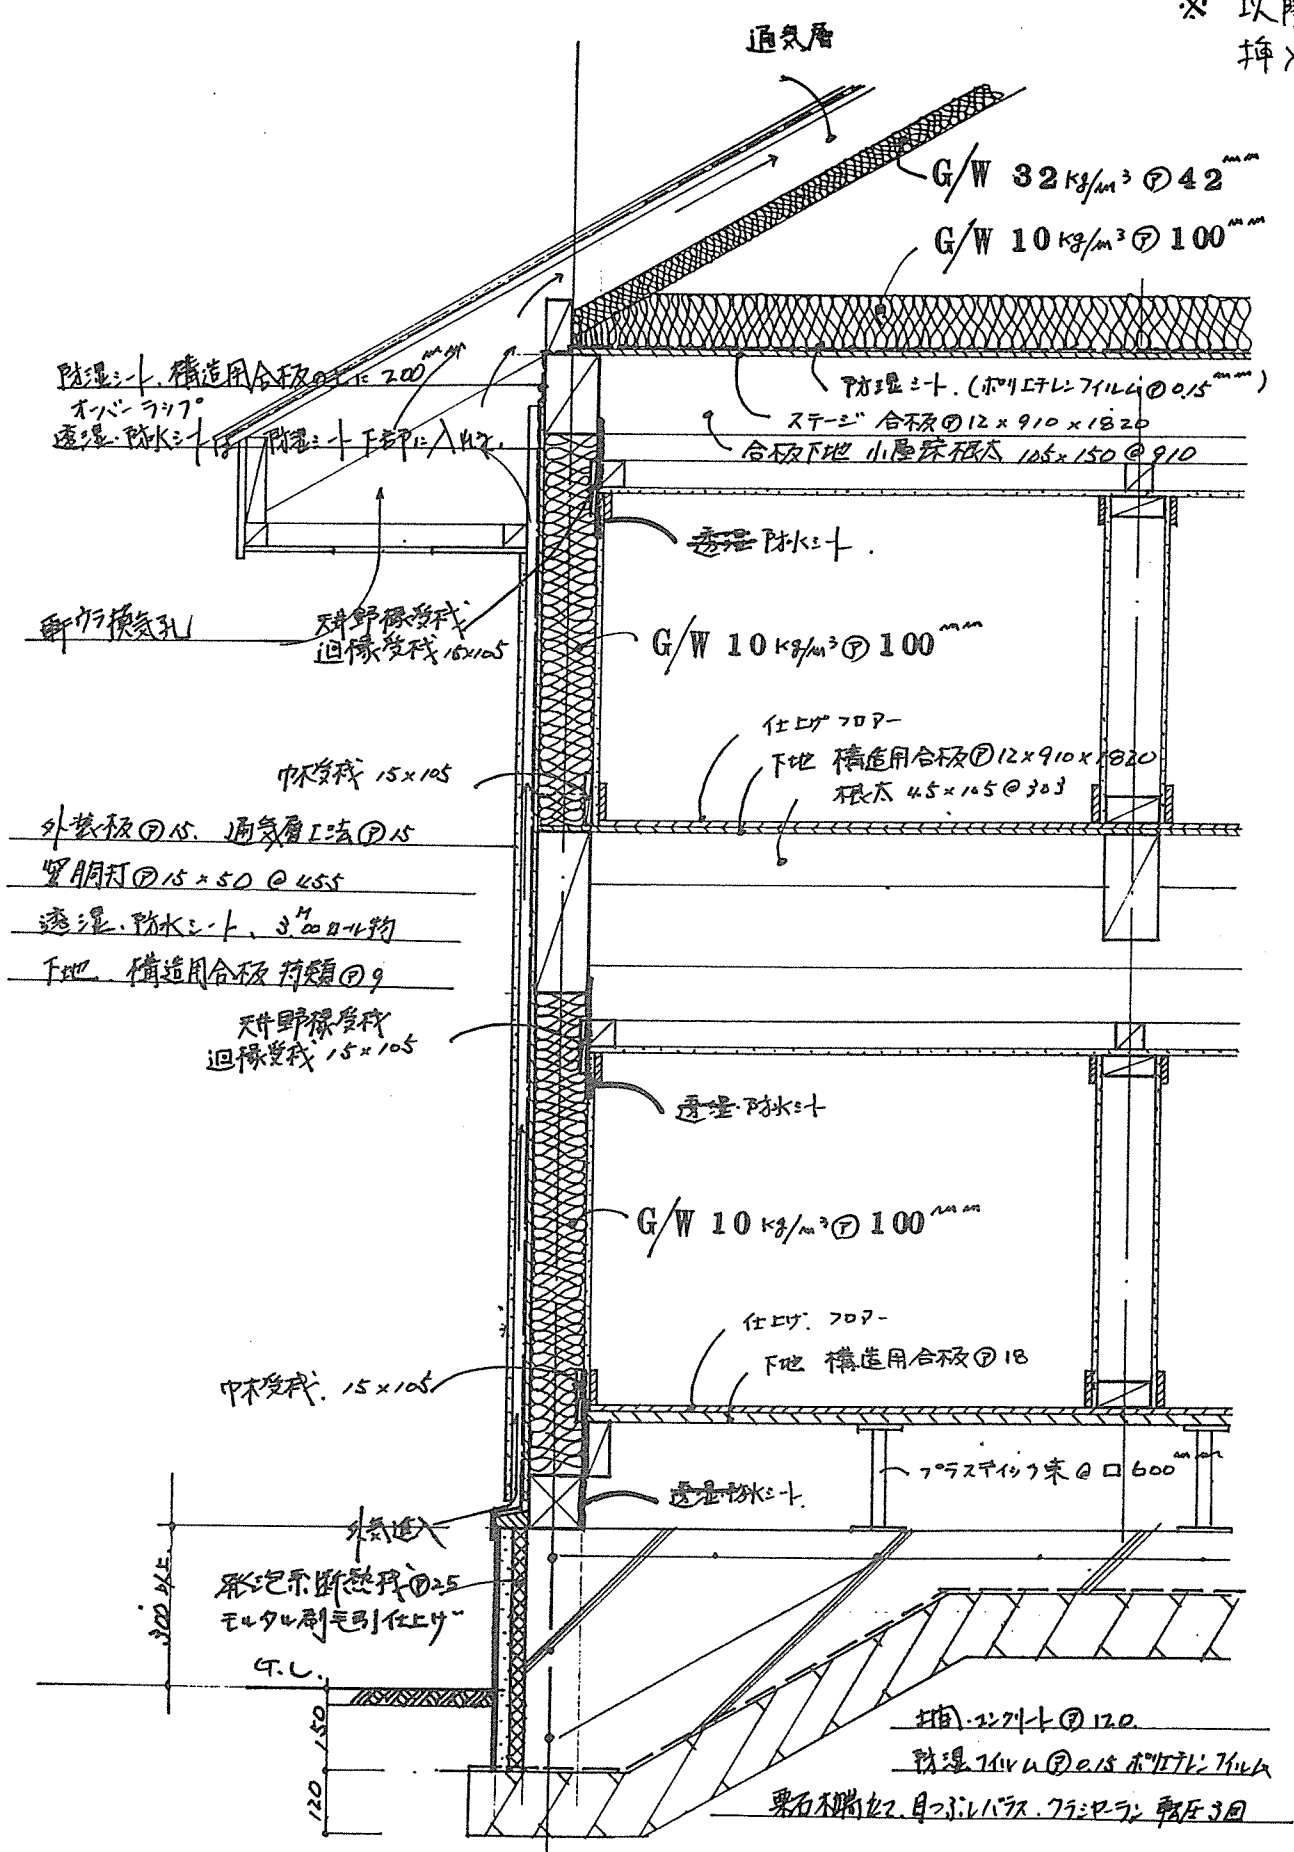 ※ 以降
挿入
通気層
G/W 32kg/m³ ㋐ 42mm
G/W 10kg/m³ ㋐ 100mm
防湿シート. 構造用合板の上に 200mm
オーバーラップ
透湿・防水シートは 防湿シート下部に入れる.
防湿シート. (ポリエチレンフィルム㋐ 0.15mm)
ステージ 合板㋐12×910×1820
合板下地 小屋床根太 105×150 @910
透湿 防水シート.
軒ウラ換気孔
天井野縁受桟
廻縁受桟 15×105
G/W 10kg/m³ ㋐ 100mm
仕上げフロアー
下地 構造用合板㋐12×910×1820
根太 45×105 @303
巾木受桟 15×105
外装板㋐15. 通気層工法㋐15
竪胴打㋐15×50 @455
透湿.防水シート、3.00M ロール物
下地. 構造用合板 特類㋐9
天井野縁受桟
廻縁受桟 15×105
透湿・防水シート
G/W 10kg/m³ ㋐ 100mm
仕上げ. フロアー
下地 構造用合板㋐18
巾木受桟. 15×105
プラスティック束 @ □ 600mm
透湿・防水シート.
外気進入
発泡系断熱材㋐25
モルタル刷毛引仕上げ
300以上
G.L.
150
120
土間.コンクリート㋐120.
防湿フイルム㋐0.15 ポリエチレンフイルム
栗石木端立て. 目つぶしバラス. クラシャーラン 転圧3回